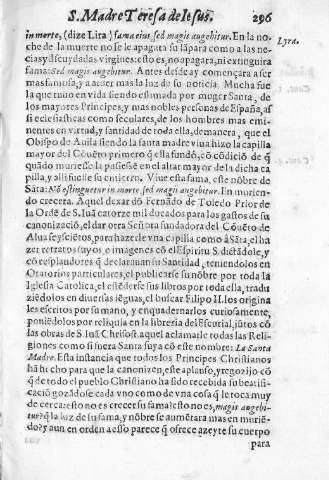 S. Madre Teresa de Iesus. 296
in morte, (dize Lira) fama eius, sed magis augebitur. En la no-
Lyra.
che de la muerte no se le apagarà su lãpara como a las ne-
cias y descuydadas virgines: esto es, no apagarà, ni extinguira
fama: Sed magis augebitur. Antes desde ay començara a ser
mas famosa, y a auer mas la luz de su noticia. Mucha fue
la que tuuo en vida siendo estimada por muger Santa, de
los mayores Principes, y mas nobles personas de España, assi
si eclesiasticas como seculares, de los hombres mas emi-
nentes en virtud, y santidad de toda ella, demanera, que el
Obispo de Auila siendo la santa madre viua hizo la capilla
mayor del Cõuẽto primero q̃ ella fundò, cõ cõdiciõ de q̃
quãdo muriesse la pusiessẽ en el altar mayor de la dicha ca
pilla, y alli fuesse su entierro. Viue esta fama, este nõbre de
Sãta: Nõ estinguetur in morte sed magis augebitur. En murien-
do crecera. Aquel dexar dõ Fernãdo de Toledo Prior de
la Ordẽ de S. Iuã catorze mil ducados para los gastos de su
canonizaciõ, el dar otra Señora fundadora del Cõuẽto de
Alua seyscietos, para hazerle vna capilla como à Sãta, el ha
zer retratos suyos, e imagenes cõ el Espiritu S. dictãdole, y
cõ resplandores q̃ declarauan su Santidad, teniendolos en
Oratorios particulares, el publicarse su nõbre por toda la
Iglesia Catolica, el estẽderse sus libros por toda ella, tradu
ziẽdolos en diuersas lẽguas, el buscar Filipo II. los origina
les escritos por su mano, y enquadernarlos curiosamente,
poniẽdolos por reliquia en la libreria del Escurial, jũtos cõ
las obras de S. Iuã Chrisost. aquel aclamarle todas las Reli-
giones como si fuera Santa suya cõ este nombre: La Santa
Madre. Esta instancia que todos los Principes Christianos
hã hecho para que la canonizen, este aplauso, y regozijo cõ
q̃ de todo el pueblo Christiano ha sido recebida su beatifi-
caciõ gozãdose cada vno como de vna cosa q̃ le toca muy
de cerca: esto no es crecer su fama? esto no es, magis augebi-
tur? q̃ la luz de su fama, y nõbre se aumẽtara mas en muriẽ-
do? y aun en orden a esso parece q̃ ofrece azeyte su cuerpo
para